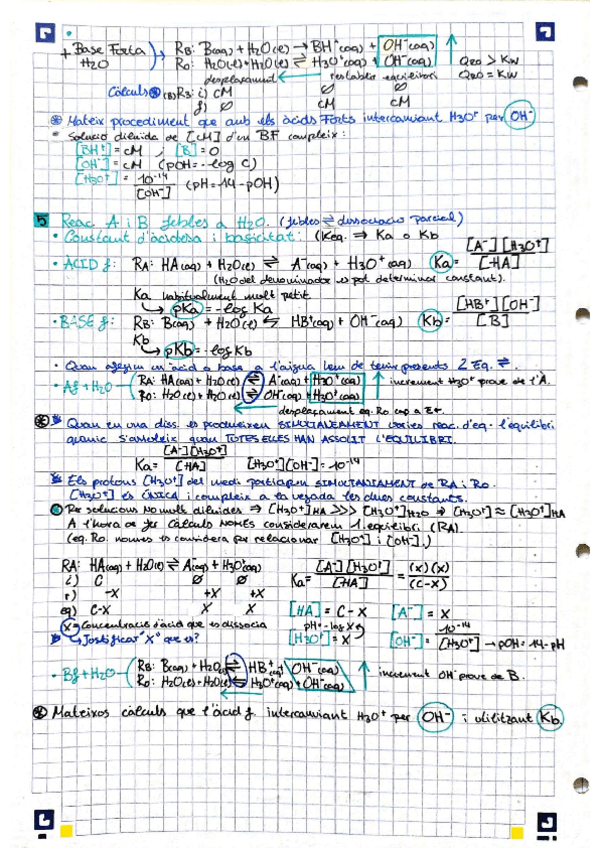 + Base Forta
H2O
RB: B(aq) + H2O(l) → BH+(aq) + OH-(aq)
Ro: H2O(l) + H2O(l) ⇌ H3O+(aq) + OH-(aq)
QRo > Kw
QRo = Kw
desplaçament ← restableix equilibri
Càlculs RB: i) cM ∅ ∅
f) ∅ cM cM
⊛ Mateix procediment que amb els àcids Forts intercanviant H3O+ per OH-
* Solució diluïda de [cM] d'un BF compleix:
[BH+] = cM ; [B] = 0
[OH-] = cM (pOH = -log C)
[H3O+] = 10^-14 / [OH-] (pH = 14 - pOH)
5 Reac. A i B febles a H2O. (febles ⇌ dissociació parcial)
• Constant d'acidesa i basicitat: (Keq. ⇒ Ka o Kb
• ÀCID f: RA: HA(aq) + H2O(l) ⇌ A-(aq) + H3O+(aq) Ka = [A-][H3O+] / [HA]
(H2O del denominador es pot determinar constant).
Ka habitualment molt petit
↳ pKa = -log Ka
• BASE f: RB: B(aq) + H2O(l) ⇆ HB+(aq) + OH-(aq) Kb = [HB+][OH-] / [B]
Kb
↳ pKb = -log Kb
• Quan afegim un àcid a base a l'aigua hem de tenir presents 2 Eq. ⇌.
• Af + H2O
RA: HA(aq) + H2O(l) ⇌ A-(aq) + H3O+(aq) ↑ increment H3O+ prové de l'A.
Ro: H2O(l) + H2O(l) ⇌ OH-(aq) + H3O+(aq)
← desplaçament eq. Ro cap a Er.
⊛ Quan en una diss. es produeixen SIMULTÀNEAMENT vàries reac. d'eq. l'equilibri
químic s'assoleix quan TOTES ELLES HAN ASSOLIT L'EQUILIBRI.
Ka = [A-][H3O+] / [HA] [H3O+][OH-] = 10^-14
Els protons [H3O+] del medi participen SIMULTÀNIAMENT de RA i Ro.
[H3O+] és ÚNICA i compleix a la vegada les dues constants.
Per solucions no molt diluïdes ⇒ [H3O+]HA >>> [H3O+]H2O ⇒ [H3O+] ≈ [H3O+]HA
A l'hora de fer càlculs NOMÉS considerarem 1 equilibri (RA).
(eq. Ro només es considera per relacionar [H3O+] i [OH-].)
RA: HA(aq) + H2O(l) ⇌ A-(aq) + H3O+(aq) Ka = [A-][H3O+] / [HA] = (x)(x) / (c-x)
i) C ∅ ∅
r) -X +X +X
eq) C-X X X [HA] = C - X [A-] = X
X → Concentració d'àcid que es dissocia pH = -log X
↳ Justificar "X" que és? [H3O+] = X [OH-] = 10^-14 / [H3O+] → pOH = 14 - pH
• Bf + H2O
RB: B(aq) + H2O(l) ⇌ HB+(aq) + OH-(aq) ↑ increment OH- prové de B.
Ro: H2O(l) + H2O(l) ⇆ H3O+(aq) + OH-(aq)
⊛ Mateixos càlculs que l'àcid f. intercanviant H3O+ per OH- i utilitzant Kb